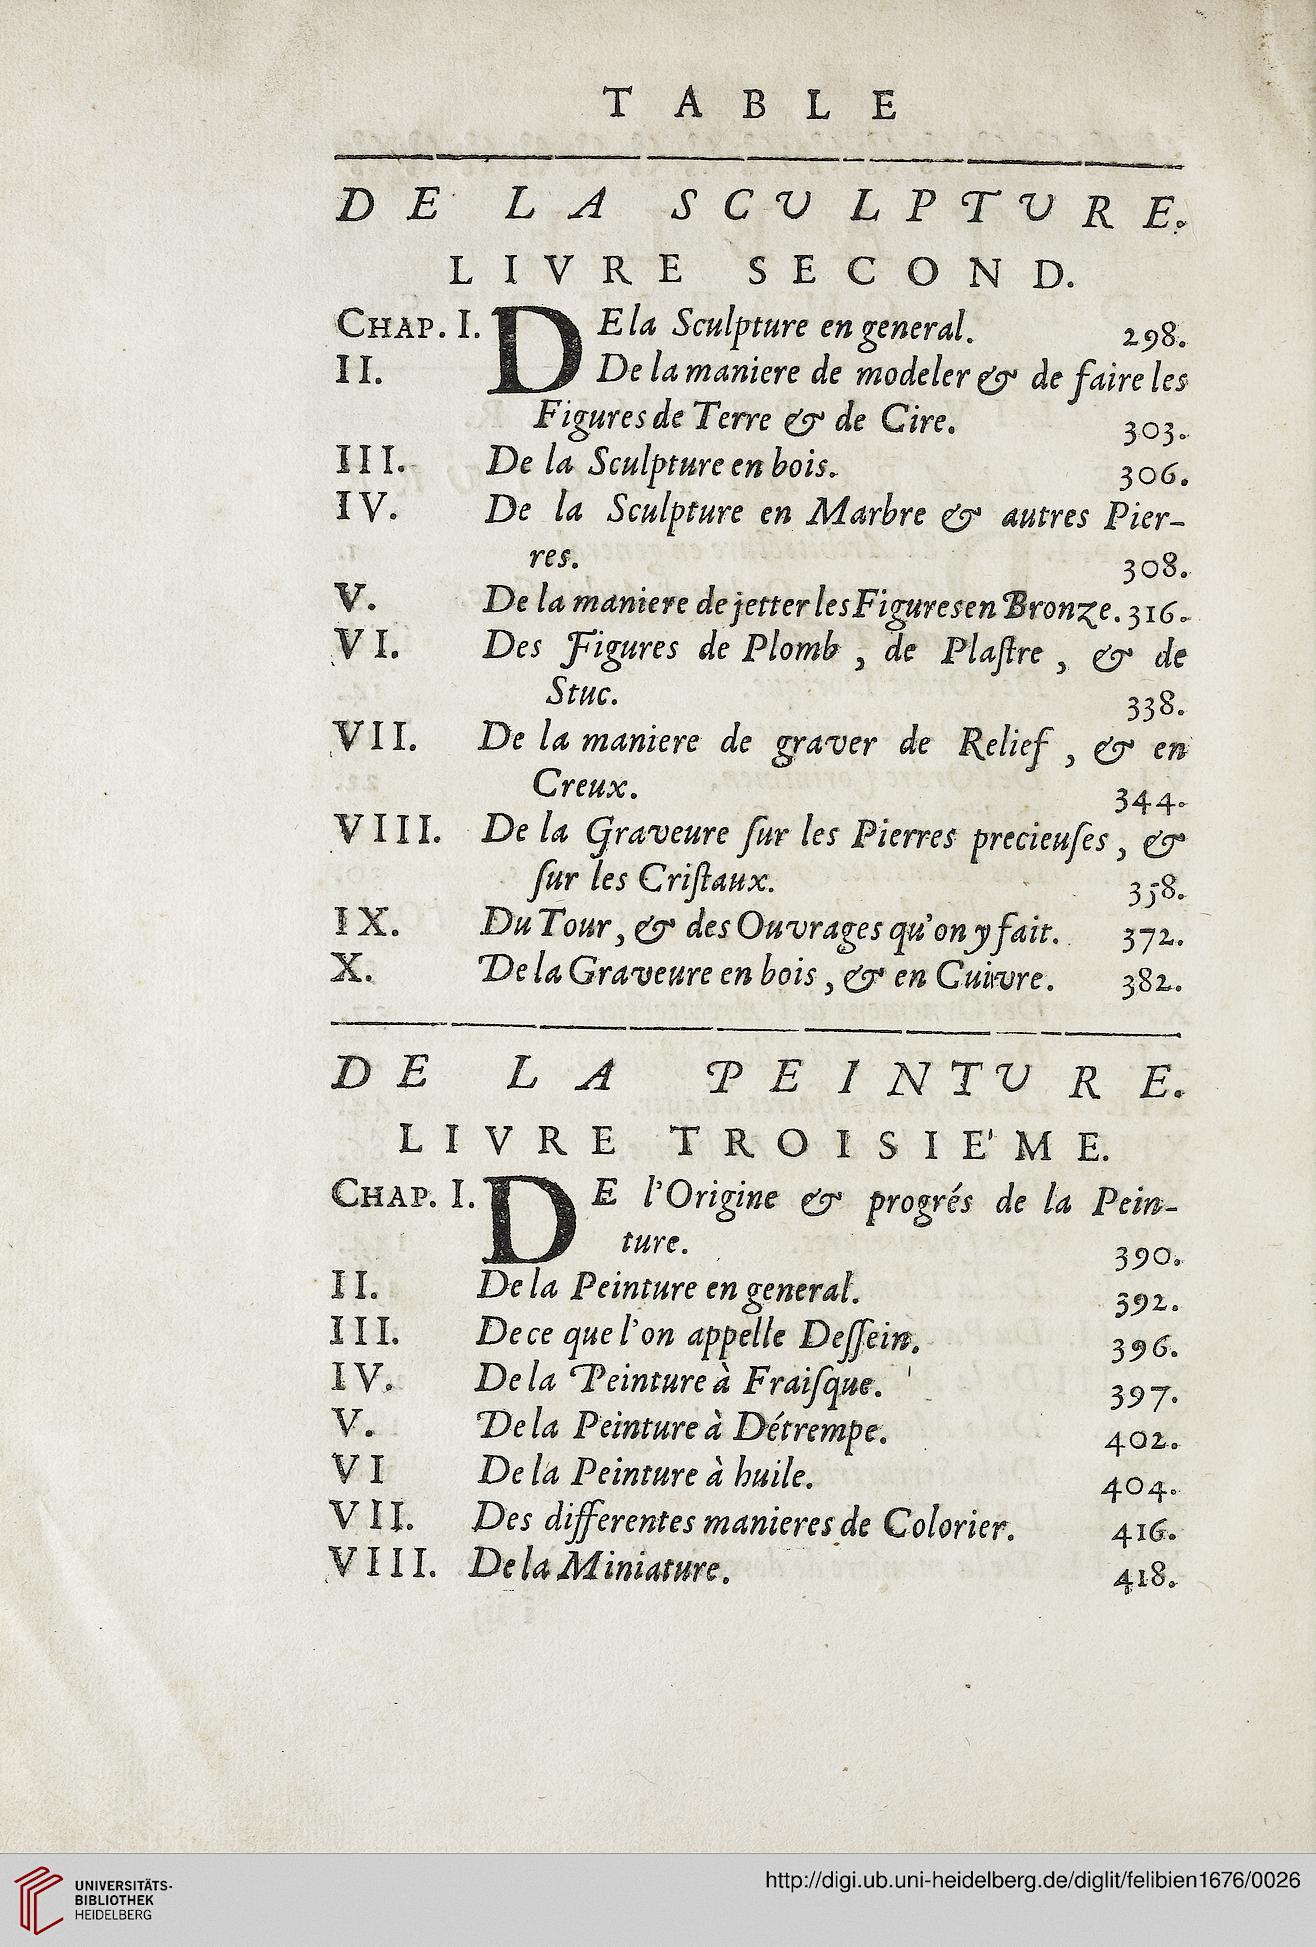 TABLE
DE LA SCVLPTVRE.
LIVRE SECOND.
CHAP. I. DE la Sculpture en general. 298.
II. De la maniere de modeler & de faire les
Figures de Terre & de Cire. 303.
III. De la Sculpture en bois. 306.
IV. De la Sculpture en Marbre & autres Pier-
res. 308.
V. De la maniere de jetter les Figures en Bronze. 316.
VI. Des Figures de Plomb, de Plaſtre, & de
Stuc. 338.
VII. De la maniere de graver de Relief, & en
Creux. 344.
VIII. De la Graveure ſur les Pierres precieuſes, &
ſur les Criſtaux. 358.
IX. Du Tour, & des Ouvrages qu'on y fait. 372.
X. De la Graveure en bois, & en Cuivre. 382.
DE LA PEINTVRE.
LIVRE TROISIE'ME.
CHAP. I. DE l'Origine & progrés de la Pein-
ture. 390.
II. De la Peinture en general. 392.
III. De ce que l'on appelle Deſſein. 396.
IV. De la Peinture à Fraiſque. 397.
V. De la Peinture à Détrempe. 402.
VI De la Peinture à huile. 404.
VII. Des differentes manieres de Colorier. 416.
VIII. De la Miniature. 418.
UNIVERSITÄTS-
BIBLIOTHEK
HEIDELBERG
http://digi.ub.uni-heidelberg.de/diglit/felibien1676/0026